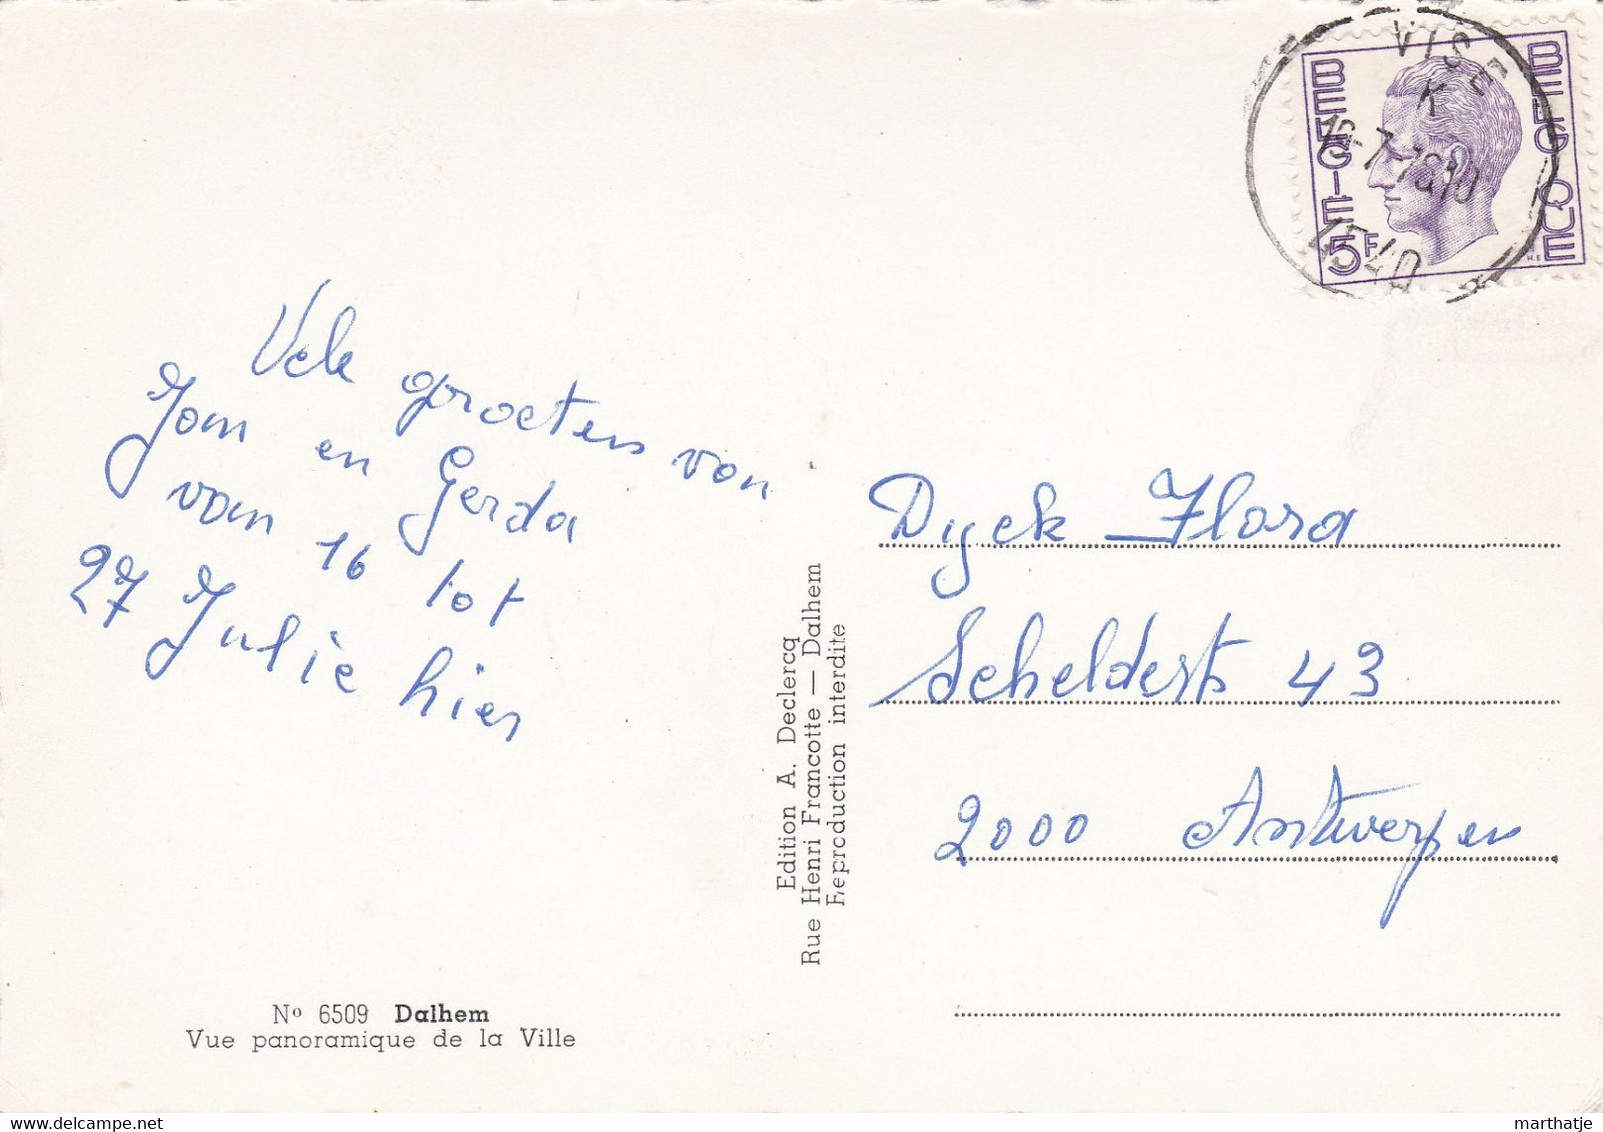 Vele groeten van
Jan en Gerda
van 16 tot
27 Julie hier
Nº 6509 Dalhem
Vue panoramique de la Ville
Edition A. Declercq
Rue Henri Francotte — Dalhem
Reproduction interdite
VISE
K
-7-76 10
4540
BELGIE
5F
BELGIQUE
Dyck Flora
Scheldestr 43
2000 Antwerpen
marthatje